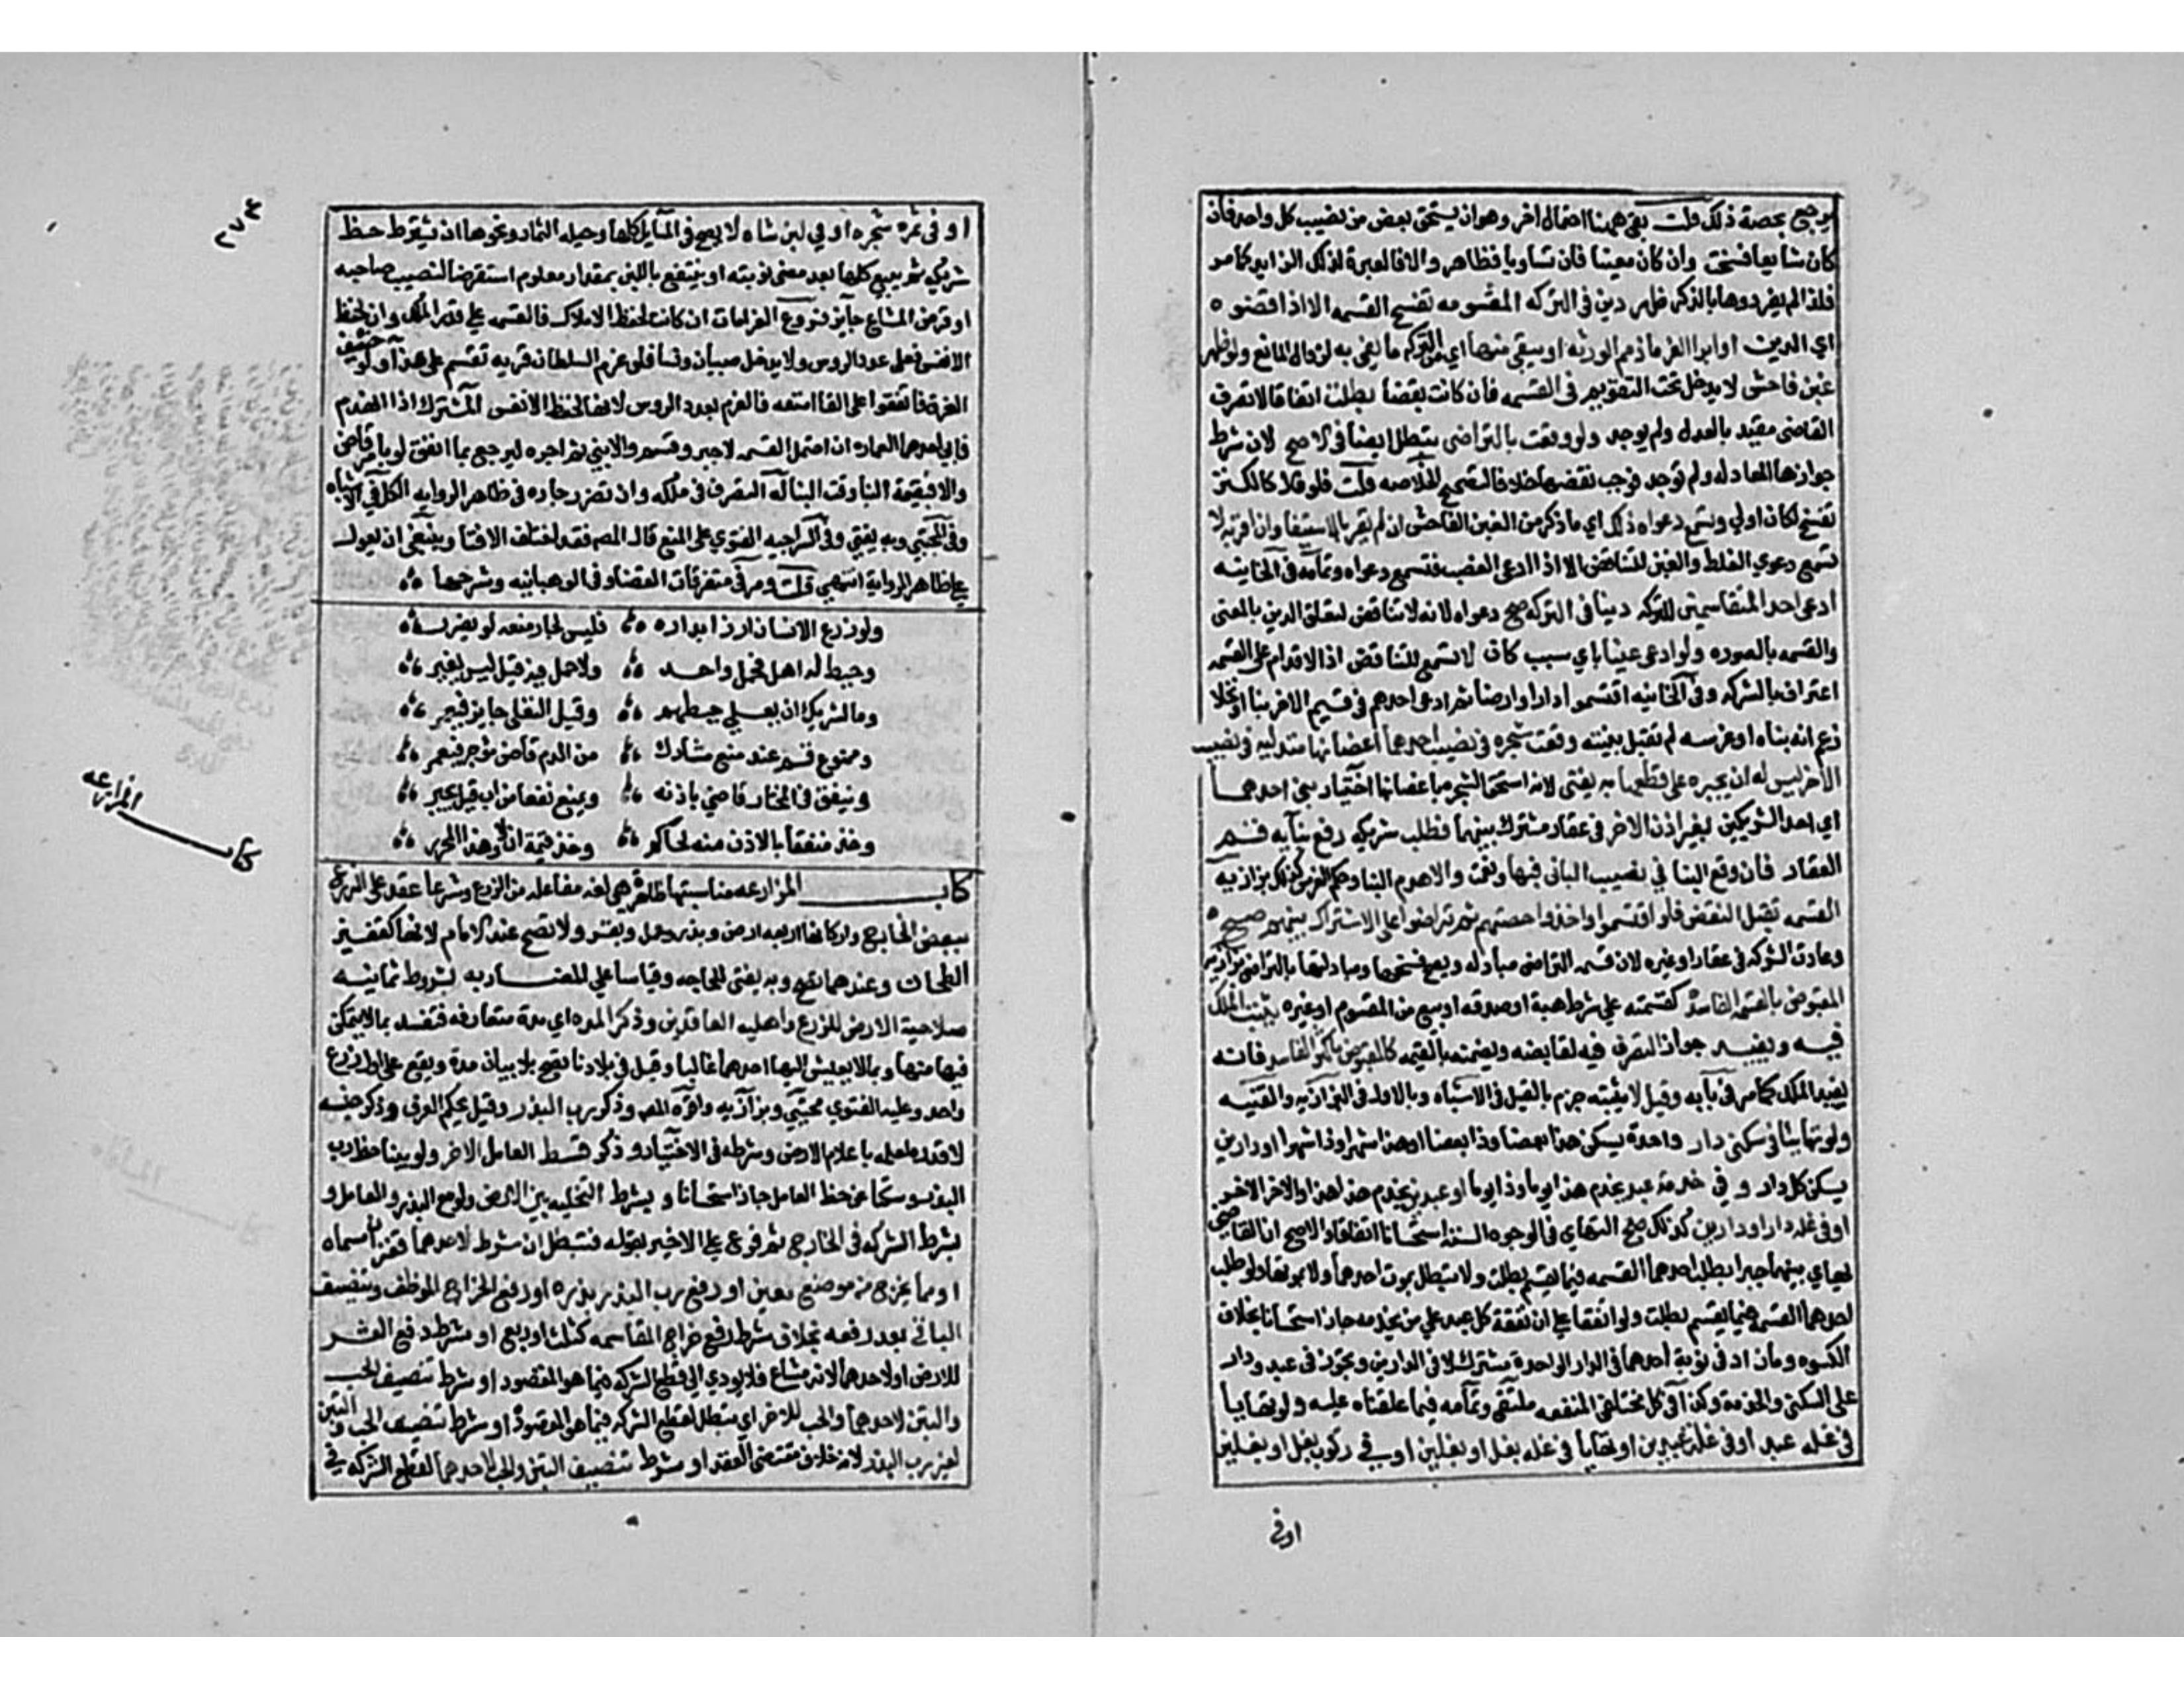 يرجع بحصة ذلك قلت بقي ههنا احتمال اخر وهو ان يستحق بعض من نصيب كل واحد فان
كان شايعا فسخت وان كان معينا فان تساويا فظاهر والا فالعبرة لذلك الزايد كما مر
فلذا لم يفردوها بالذكر ظهر دين في التركه المقسومه تفسخ القسمه الا اذا قضوه
اي الدين او ابرا الغرما ذمم الورثه او يبقى منها اي التركه ما يفي به لزوال المانع ولو ظهر
غبن فاحش لا يدخل تحت التقويم في القسمه فان كانت بقضا بطلت اتفاقا لان تصرف
القاضي مقيد بالعدل ولم يوجد ولو وقعت بالتراضي تبطل ايضا في الاصح لان شرط
جوازها المعادله ولم توجد فوجب نقضها خلافا لتصحيح الخلاصه قلت فلو قال كالكنز
تفسخ لكان اولي وتسمع دعواه ذلك اي ما ذكر من الغبن الفاحش ان لم يقر بالاستيفا وان اقر به لا
تسمع دعوي الغلط والغبن للتناقض الا اذا ادعى الغصب فتسمع دعواه وتمامه في الخانيه
ادعى احد المتقاسمين للتركه دينا في التركه صح دعواه لانه لا تناقض لتعلق الدين بالمعنى
والقسمه بالصوره ولو ادعى عينا باي سبب كان لا تسمع للتناقض اذ الاقدام على القسمه
اعتراف بالشركه وفي الخانيه اقتسموا دارا او ارضا ثم ادعى احدهم في قسم الاخر بنا او نخلا
زعم انه بناه او غرسه لم تقبل بينته وقعت شجره في نصيب احدهما اغصانها متدليه في نصيب
الاخر ليس له ان يجبره على قطعها به يفتى لانه استحق الشجره باغصانها اختيار بنى احدهما
اي احد الشريكين بغير اذن الاخر في عقار مشترك بينهما فطلب شريكه رفع بنايه قسم
العقار فان وقع البنا في نصيب الباني فبها ونعمت والا هدم البنا وحكم الغرس كذلك بزازيه
القسمه تقبل النقض فلو اقتسموا واخذوا حصتهم ثم تراضوا على الاشتراك بينهم صح
وعادت الشركه في عقار او غيره لان قسمة التراضي مبادله ويصح فسخها ومبادلتها بالتراضي بزازيه
المقبوض بالقسمه الفاسدة كقسمته علي شرط هبة او صدقه او بيع من المقسوم او غيره يثبت الملك
فيه ويفيد جواز التصرف فيه لقابضه ويضمنه بالقيمه كالمقبوض بالشرا الفاسد فانه
يفيد الملك كما مر في بابه وقيل لا يثبته جزم بالقيل في الاشباه وبالاول في البزازيه والقنيه
ولو تهايئا في سكنى دار واحدة يسكن هذا بعضا وذا بعضا او هذا شهرا وذا شهرا او دارين
يسكن كل دار و في خدمة عبد يخدم هذا يوما وذا يوما او عبدين يخدم هذا هذا والاخر الاخر
او في غلة دار او دارين كذلك صح التهايي في الوجوه الستة استحسانا اتفاقا والاصح ان القاضي
يهايي بينهما جبرا بطلب احدهما القسمه فيما يقسم بطلت ولا تبطل بموت احدهما ولا بموتهما ولو طلب
احدهما القسمه فيما يقسم بطلت ولو اتفقا علي ان نفقة كل عبد علي من يخدمه جاز استحسانا بخلاف
الكسوه وما زاد في نوبة احدهما في الدار الواحدة مشترك لا في الدارين وتجوز في عبد ودار
على السكنى والخدمة وكذا في كل مختلفي المنفعه ملتقى وتمامه فيما علقناه عليه ولو تهاييا
في غله عبد او في غلة عبدين او تهاييا في غله بغل او بغلين او في ركوب بغل او بغلين
او في
٢٧٤
او في ثمره شجره او في لبن شاه لا يصح في المسايل كلها وحيله الثمار ونحوها ان يشتري حظ
شريكه ثم يبيع كلها بعد مضى نوبته او ينتفع باللبن بمقدار معلوم استقرضا لنصيب صاحبه
اذ قرض المشاع جايز فروع الغرامات ان كانت لحفظ الاملاك فالقسمه علي قدر الملك وان لحفظ
الانفس فعلى عدد الروس ولا يدخل صبيان ونسا فلو غرم السلطان قريه تقسم على هذا ولو خيف
الغرق فاتفقوا على القا امتعه فالغرم بعدد الروس لانها لحفظ الانفس المشترك اذا انهدم
فابى احدهما العماره ان احتمل القسمه لا جبر وقسم والا بني ثم اجره ليرجع بما انفق لو بامر قاض
والا فبقيمة البنا وقت البنا له التصرف في ملكه وان تضرر جاره في ظاهر الروايه الكل في الاشباه
وفي المجتبي وبه يفتي وفي السراجيه الفتوي على المنع قال المص فقد اختلف الافتا وينبغي ان يعول
علي ظاهر الرواية انتهي قلت ومر في متفرقات القضا وفي الوهبانيه وشرحها
ولو زرع الانسان ارزا بداره فليس لجار منعه لو يضرر
وحيط له اهل فحمل واحد ولا حمل فيه قبل ليس يغير
وما لشريك ان يعلي حيطهم وقيل التعلي جايز فيعمر
وممنوع قسم عند منع مشارك من الرم قاض موجر فيعمر
وينفق في المختار قاضي باذنه ويمنع نفعا من ابى قبل يجبر
وخذ منفقا بالاذن منه لحاكم وخذ قيمة ان لا وهذا المحرر
كتاب المزارعه
كتاب المزارعه مناسبتها ظاهرة هي لغه مفاعله من الزرع وشرعا عقد على الزرع
ببعض الخارج واركانها اربعه ارض وبذر وعمل وبقر ولا تصح عند الامام لانها كقفيز
الطحان وعندهما تصح وبه يفتى للحاجه وقياسا علي المضاربه بشروط ثمانيه
صلاحية الارض للزرع واهليه العاقدين وذكر المده اي مدة متعارفه فتفسد بما لا يتمكن
فيها منها وبما لا يعيش اليها احدهما غالبا وقيل في بلادنا تصح بلا بيان مدة ويقع على اول زرع
واحد وعليه الفتوي مجتبي وبزازيه واقره المص وذكر رب البذر وقيل يحكم العرف وذكر جنسه
لا قدره لعلمه باعلام الارض وشرطه في الاختيار و ذكر قسط العامل الاخر ولو بينا حظ رب
البذر وسكتا عن حظ العامل جاز استحسانا و بشرط التخليه بين الارض ولو مع البذر والعامل و
بشرط الشركه في الخارج ثم فرع علي الاخير بقوله فتبطل ان شرط لاحدهما قفزان مسماه
او ما يخرج من موضع معين او رفع رب البذر بذره او رفع الخراج الموظف وتنصيف
الباقي بعد رفعه بخلاف شرط رفع خراج المقاسمه كثلث او ربع او شرط رفع العشر
للارض او لاحدهما لانه مشاع فلا يودي الى قطع الشركه فيما هو المقصود او شرط تنصيف الحب
والتبن لاحدهما والحب للاخر اي تبطل لقطع الشركه فيما هو المقصود او شرط تنصيف الحب والتبن
لغير رب البذر لانه خلاف مقتضى العقد او شرط تنصيف التبن والحب لاحدهما لقطع الشركه في